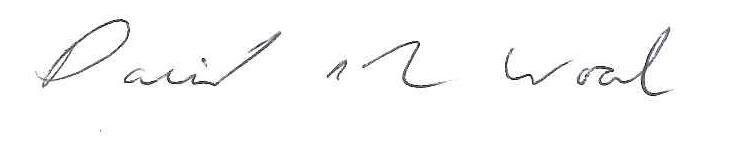 David M Wood